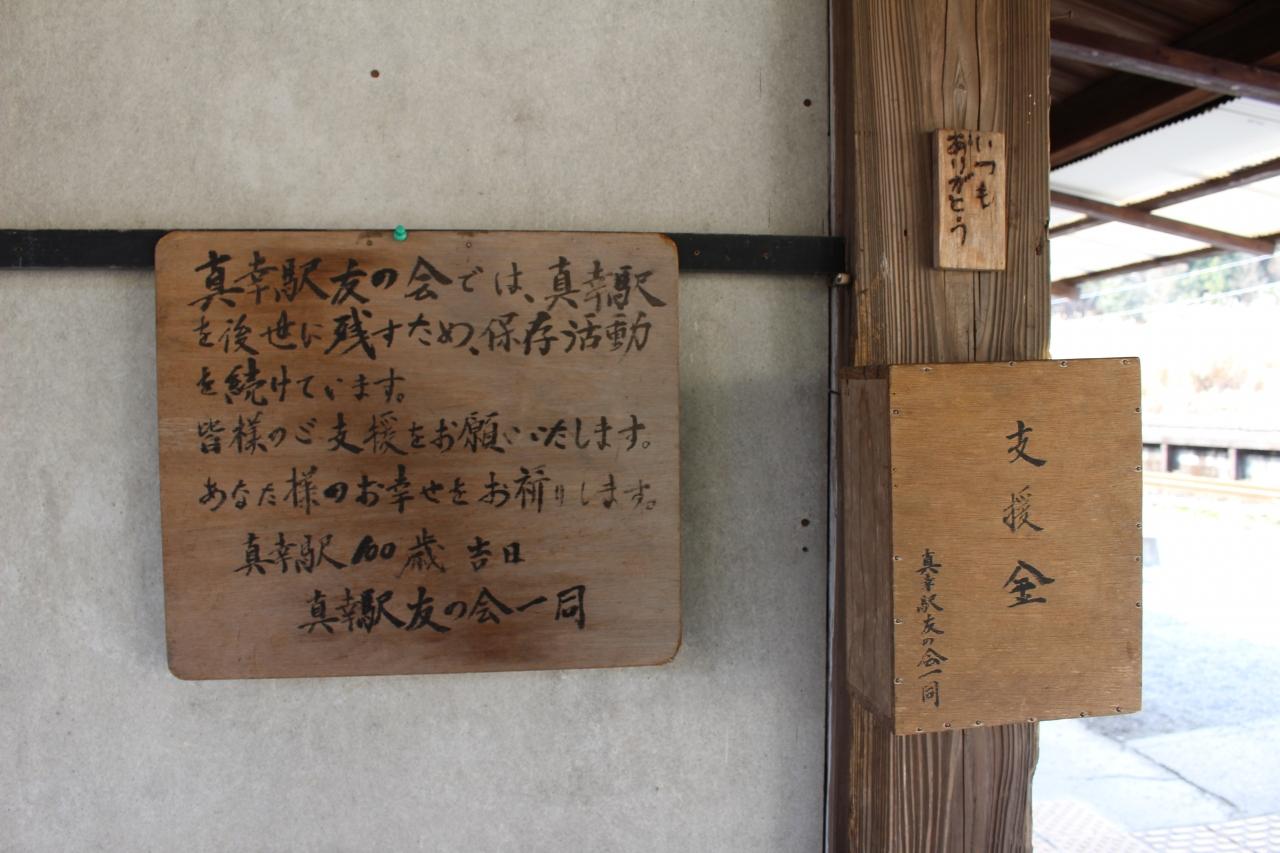 真幸駅友の会では、真幸駅
を後世に残すため、保存活動
を続けています。
皆様のご支援をお願いいたします。
あなた様のお幸せをお祈りします。
真幸駅100歳 吉日
真幸駅友の会一同
いつも
ありがとう
支援金
真幸駅友の会一同